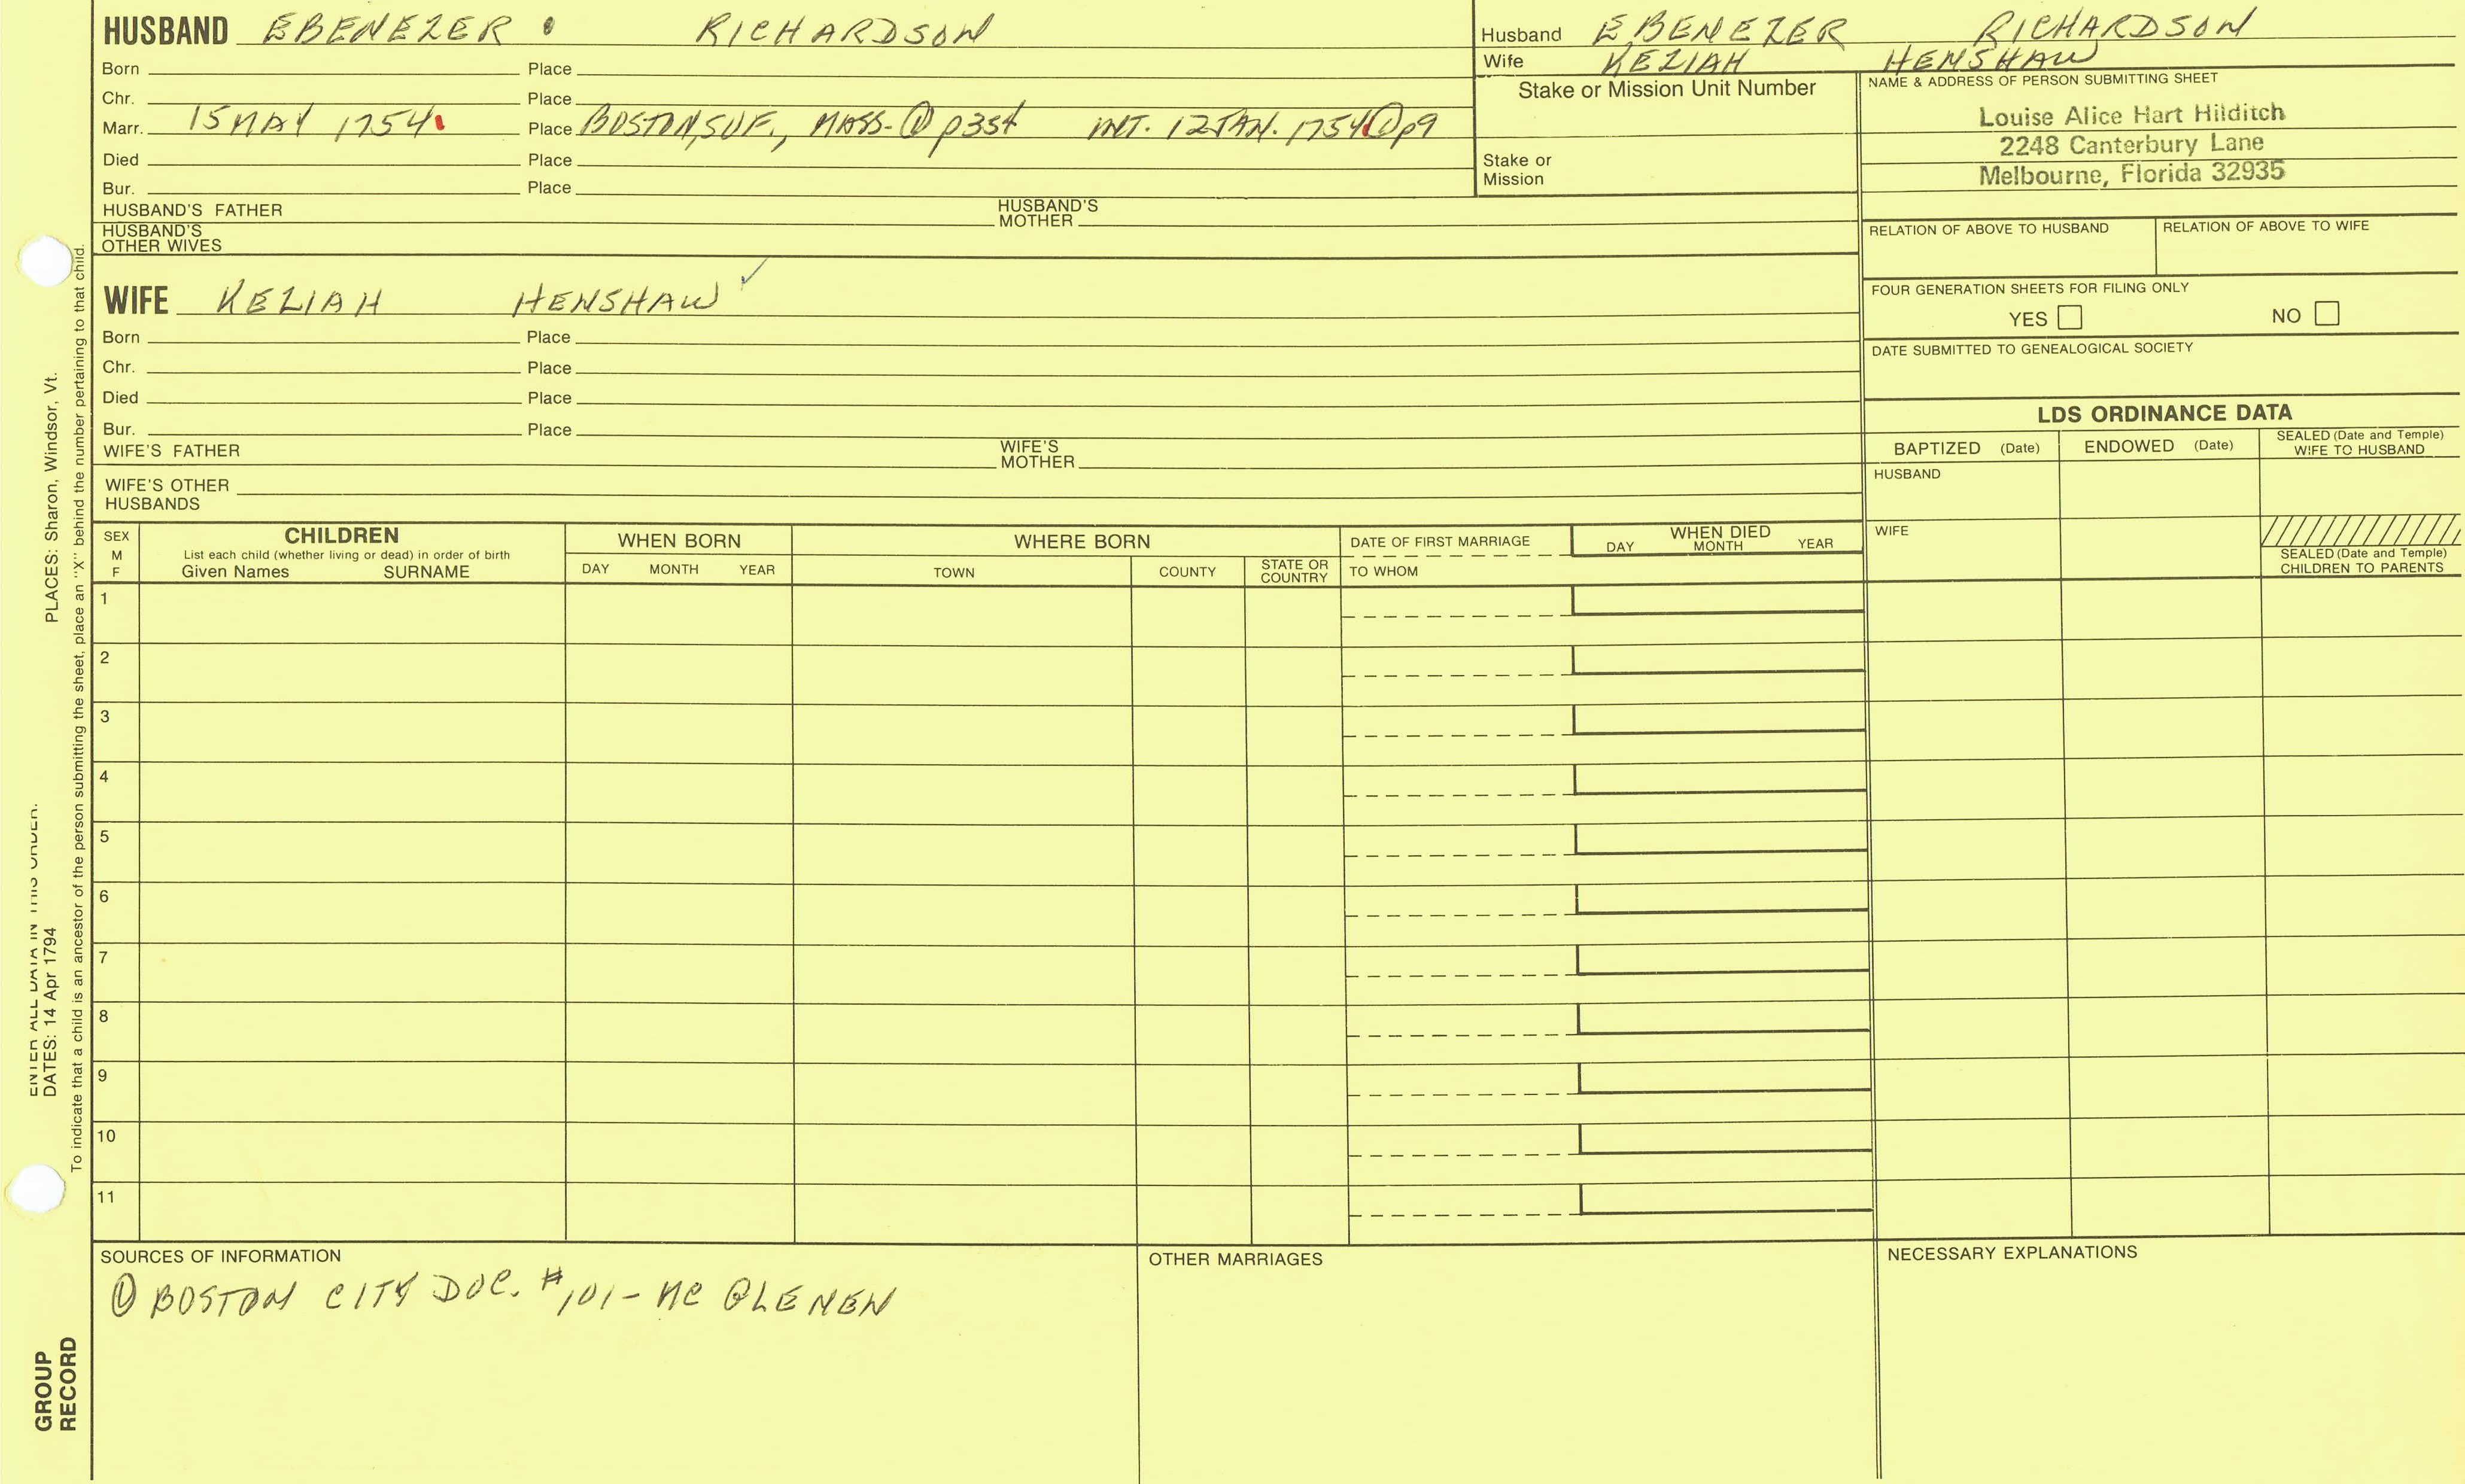 HUSBAND EBENEZER RICHARDSON
Born Place
Chr. Place
Marr. 15 MAY 1754 Place BOSTON, SUF., MASS. ① INT. 12 JAN. 1754 ① p9
Died Place
Bur. Place
HUSBAND'S FATHER HUSBAND'S MOTHER
HUSBAND'S OTHER WIVES
Husband EBENEZER RICHARDSON
Wife KEZIAH HENSHAW
Stake or Mission Unit Number
Stake or
Mission
NAME & ADDRESS OF PERSON SUBMITTING SHEET
Louise Alice Hart Hilditch
2248 Canterbury Lane
Melbourne, Florida 32935
RELATION OF ABOVE TO HUSBAND RELATION OF ABOVE TO WIFE
FOUR GENERATION SHEETS FOR FILING ONLY
YES NO
DATE SUBMITTED TO GENEALOGICAL SOCIETY
WIFE KEZIAH HENSHAW ✓
Born Place
Chr. Place
Died Place
Bur. Place
WIFE'S FATHER WIFE'S MOTHER
WIFE'S OTHER
HUSBANDS
LDS ORDINANCE DATA
BAPTIZED (Date) ENDOWED (Date) SEALED (Date and Temple) WIFE TO HUSBAND
HUSBAND
WIFE
SEALED (Date and Temple)
CHILDREN TO PARENTS
SEX
M
F
CHILDREN
List each child (whether living or dead) in order of birth
Given Names SURNAME
WHEN BORN
DAY MONTH YEAR
WHERE BORN
TOWN COUNTY STATE OR COUNTRY
DATE OF FIRST MARRIAGE
TO WHOM
WHEN DIED
DAY MONTH YEAR
1
2
3
4
5
6
7
8
9
10
11
SOURCES OF INFORMATION
① BOSTON CITY DOC. #101 - MC GLENEN
OTHER MARRIAGES
NECESSARY EXPLANATIONS
ENTER ALL DATA IN THIS ORDER.
DATES: 14 Apr 1794 PLACES: Sharon, Windsor, Vt.
To indicate that a child is an ancestor of the person submitting the sheet, place an "X" behind the number pertaining to that child.
GROUP
RECORD